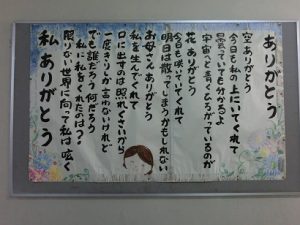 ありがとう
空 ありがとう
今日も私の上にいてくれて
曇っていても分かるよ
宇宙へと青くひろがっているのが
花 ありがとう
今日も咲いていてくれて
明日は散ってしまうかもしれない
お母さん ありがとう
私を生んでくれて
口に出すのは照れくさいから
一度きりしか言わないけれど
でも誰だろう 何だろう
私に私をくれたのは?
限りない世界に向って私は呟く
私 ありがとう